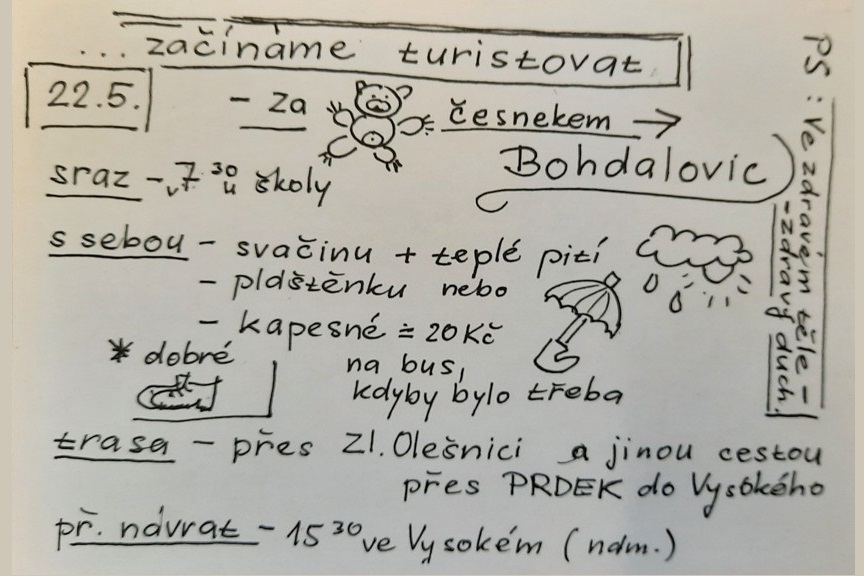 ... začínáme turistovat
22.5. - za česnekem →
Bohdalovic
sraz - v 7 30 u školy
s sebou - svačinu + teplé pití
- pláštěnku nebo
- kapesné ≐ 20 Kč
na bus,
kdyby bylo třeba
* dobré
trasa - přes Zl. Olešnici a jinou cestou
přes PRDEK do Vysokého
př. návrat - 15 30 ve Vysokém (nám.)
PS: Ve zdravém těle -
- zdravý duch.